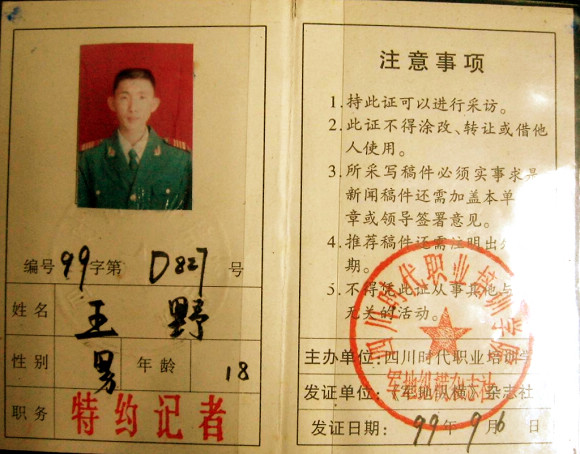 编号99字第 D827 号
姓名 王野
性别 男 年龄 18
职务 特约记者
注意事项
1. 持此证可以进行采访。
2. 此证不得涂改、转让或借他
人使用。
3. 所采写稿件必须实事求是
新闻稿件还需加盖本单
章或领导签署意见。
4. 推荐稿件还需注明出
期。
5. 不得凭此证从事其他与
无关的活动。
主办单位:四川时代职业培训学
发证单位:《军地纵横》杂志社
发证日期: 99年9月6日
四川时代职业培训学院